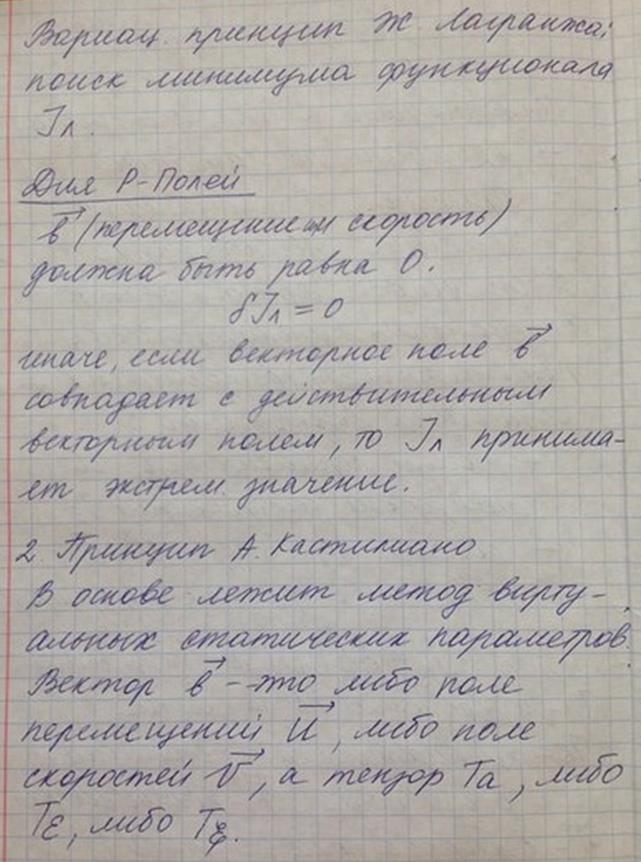 Вариац. принцип Ж. Лагранжа:
поиск минимума функционала
Jл.
Для P-Полей
в⃗ (перемещение или скорость)
должна быть равна 0.
δJл = 0
иначе, если векторное поле в⃗
совпадает с действительным
векторным полем, то Jл принима-
ет экстрем. значение.
2. Принцип А. Кастилиано
В основе лежит метод вирту-
альных статических параметров.
Вектор в⃗ - это либо поле
перемещений U⃗, либо поле
скоростей V⃗, а тензор Tа, либо
Tε, либо Tξ.